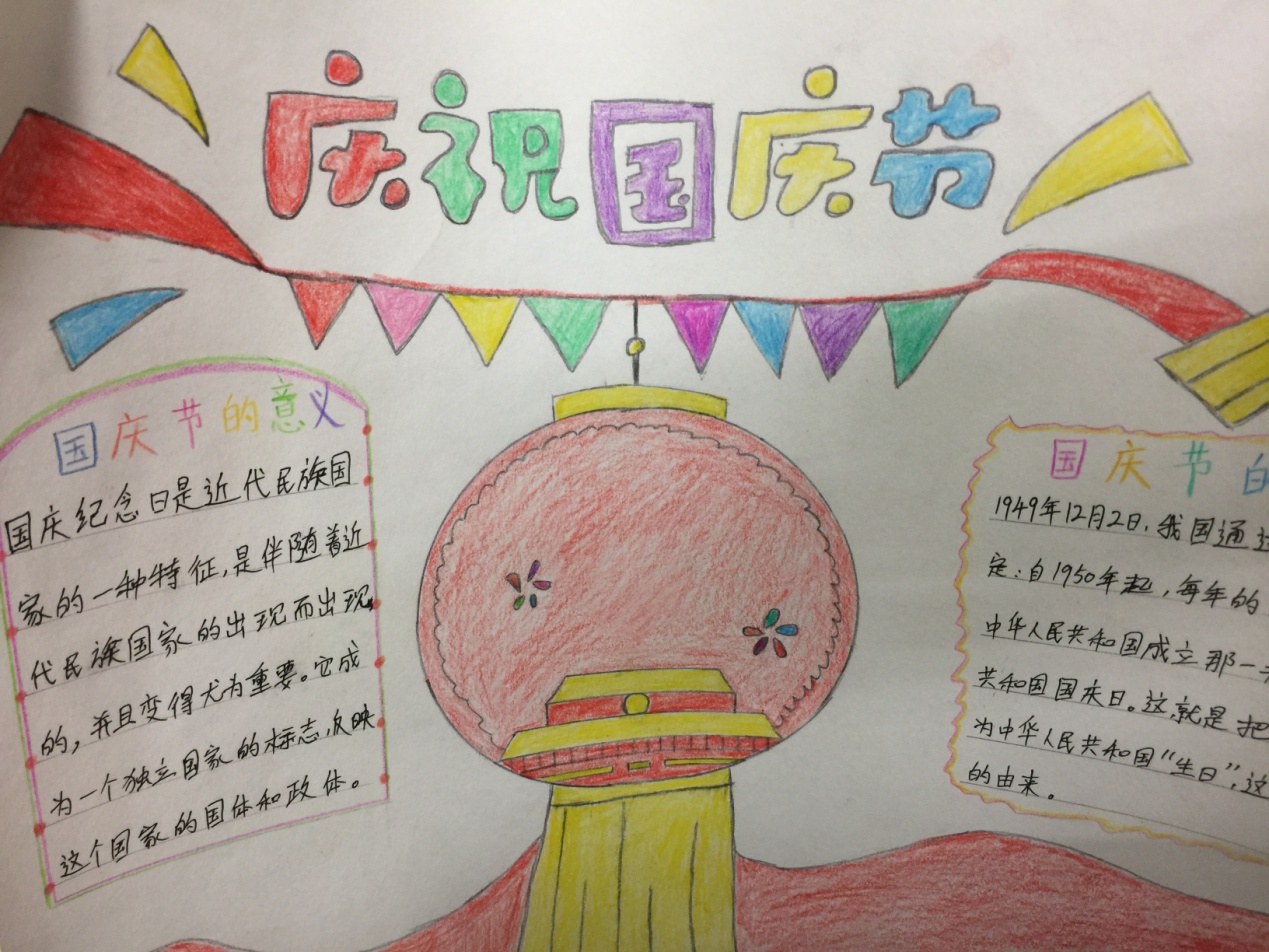 庆祝国庆节
国庆节的意义
国庆纪念日是近代民族国
家的一种特征,是伴随着近
代民族国家的出现而出现
的,并且变得尤为重要。它成
为一个独立国家的标志,反映
这个国家的国体和政体。
国庆节的
1949年12月2日,我国通过
定:自1950年起,每年的
中华人民共和国成立那一天
共和国国庆日。这就是把
为中华人民共和国“生日”,这
的由来。